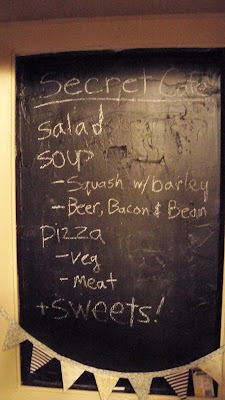 Secret Cafe
salad
soup
- Squash w/barley
- Beer, Bacon & Bean
pizza
- veg
- meat
+ sweets!